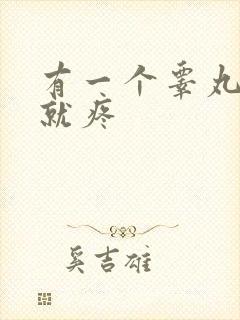 有一个睾丸
就疼
奚吉雄